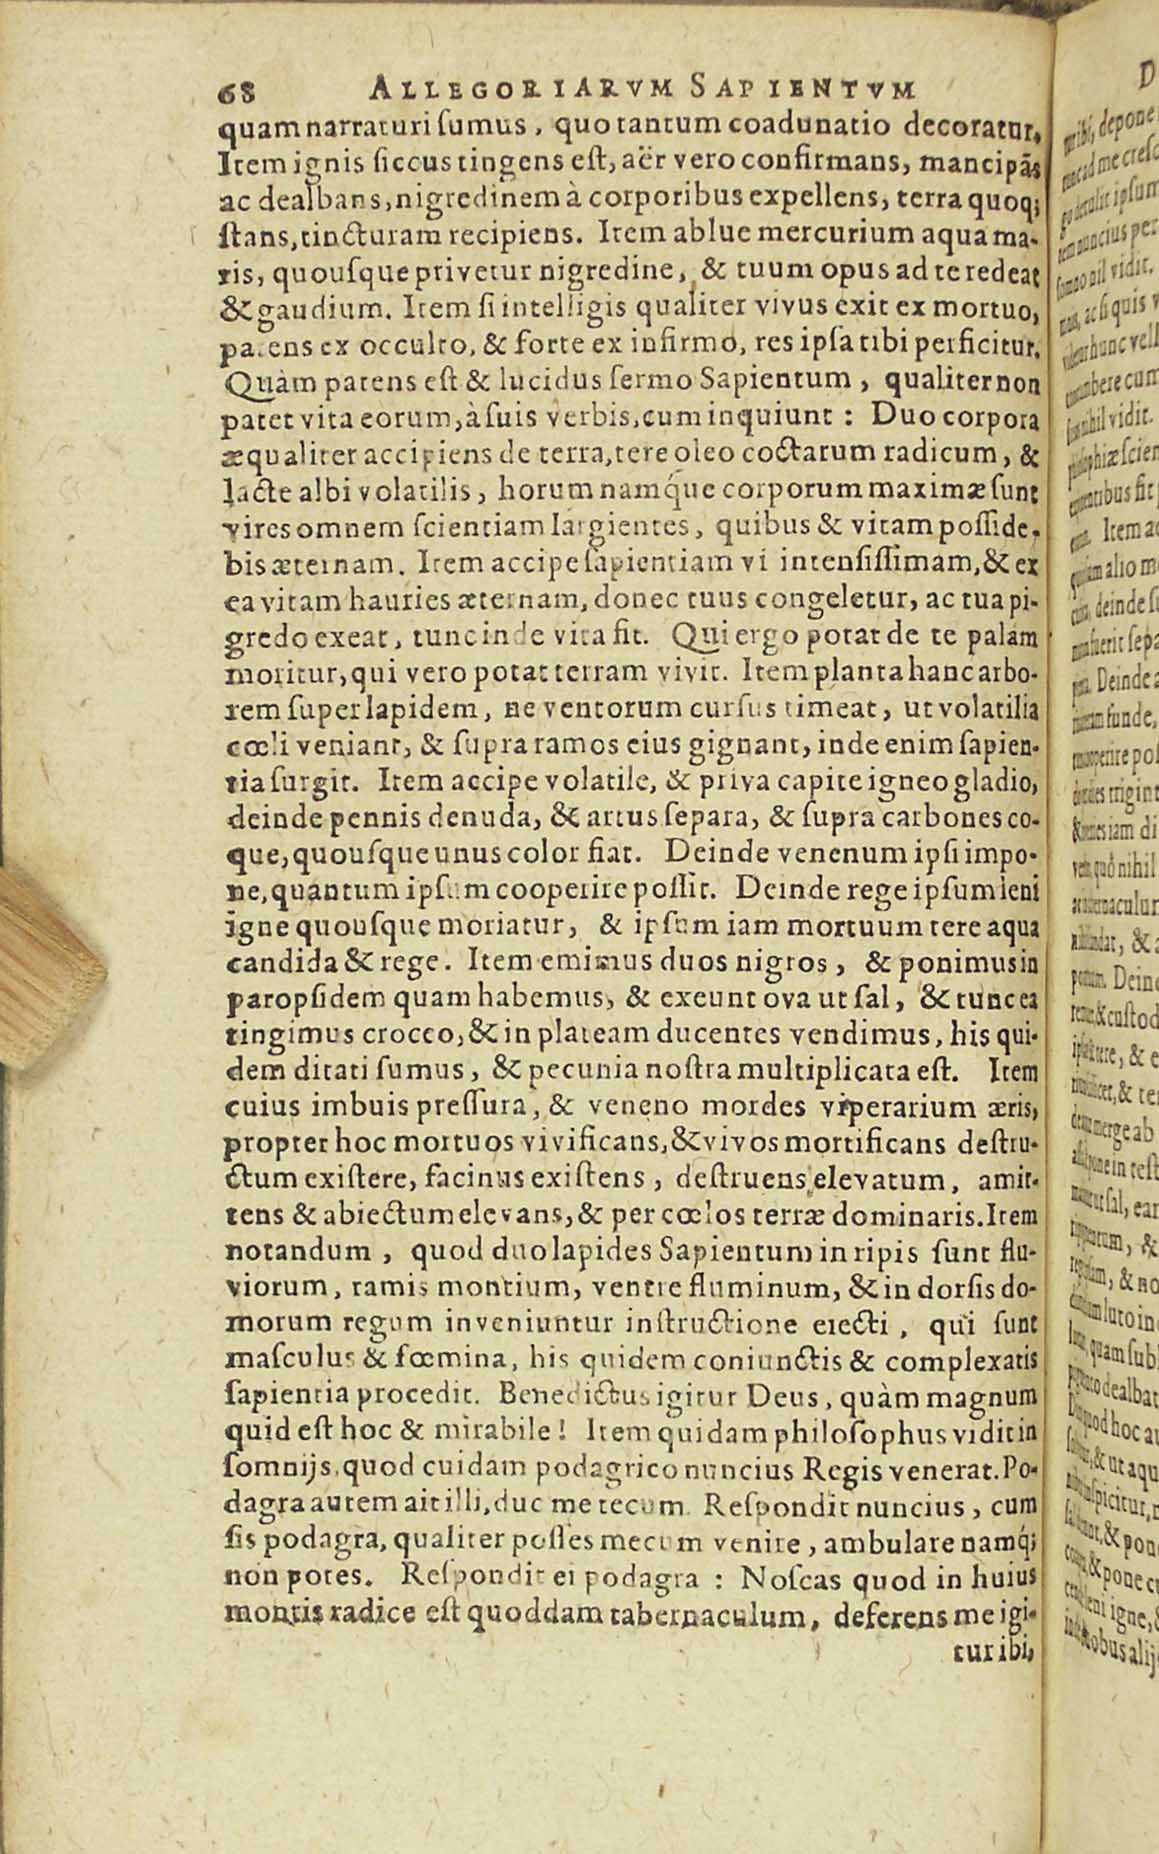 68 ALLEGORIARVM SAPIENTVM
quam narraturi sumus, quo tantum coadunatio decoratur.
Item ignis siccus tingens est, aër vero confirmans, mancipãs
ac dealbans, nigredinem à corporibus expellens, terra quoq;
stans, tincturam recipiens. Item ablue mercurium aqua ma-
ris, quousque privetur nigredine, & tuum opus ad te redeat
& gaudium. Item si intelligis qualiter vivus exit ex mortuo,
patens ex occulto, & forte ex infirmo, res ipsa tibi perficitur.
Quàm patens est & lucidus sermo Sapientum, qualiter non
patet vita eorum, à suis verbis, cum inquiunt: Duo corpora
æqualiter accipiens de terra, tere oleo coctarum radicum, &
lacte albi volatilis, horum namq́ue corporum maximæ sunt
vires omnem scientiam largientes, quibus & vitam posside-
bis æternam. Item accipe sapientiam vi intensissimam, & ex
ea vitam hauries æternam, donec tuus congeletur, ac tua pi-
gredo exeat, tunc inde vita fit. Qui ergo potat de te palam
moritur, qui vero potat terram vivit. Item planta hanc arbo-
rem super lapidem, ne ventorum cursus timeat, ut volatilia
cœli veniant, & supra ramos eius gignant, inde enim sapien-
tia surgit. Item accipe volatile, & priva capite igneo gladio,
deinde pennis denuda, & artus separa, & supra carbones co-
que, quousque unus color fiat. Deinde venenum ipsi impo-
ne, quantum ipsum cooperire possit. Deinde rege ipsum leni
igne quousque moriatur, & ipsum iam mortuum tere aqua
candida & rege. Item emimus duos nigros, & ponimus in
paropsidem quam habemus, & exeunt ova ut sal, & tunc ea
tingimus croceo, & in plateam ducentes vendimus, his qui-
dem ditati sumus, & pecunia nostra multiplicata est. Item
cuius imbuis pressura, & veneno mordes viperarium æris,
propter hoc mortuos vivificans, & vivos mortificans destru-
ctum existere, facinus existens, destruens elevatum, amit-
tens & abiectum elevans, & per cœlos terræ dominaris. Item
notandum, quod duo lapides Sapientum in ripis sunt flu-
viorum, ramis montium, ventre fluminum, & in dorsis do-
morum regum inveniuntur instructione eiecti, qui sunt
masculus & fœmina, his quidem coniunctis & complexatis
sapientia procedit. Benedictus igitur Deus, quàm magnum
quid est hoc & mirabile! Item quidam philosophus vidit in
somnijs, quod cuidam podagrico nuncius Regis venerat. Po-
dagra autem ait illi, duc me tecum. Respondit nuncius, cum
sis podagra, qualiter posses mecum venire, ambulare namq́;
non potes. Respondit ei podagra: Noscas quod in huius
montis radice est quoddam tabernaculum, deferens me igi-
tur ibi,